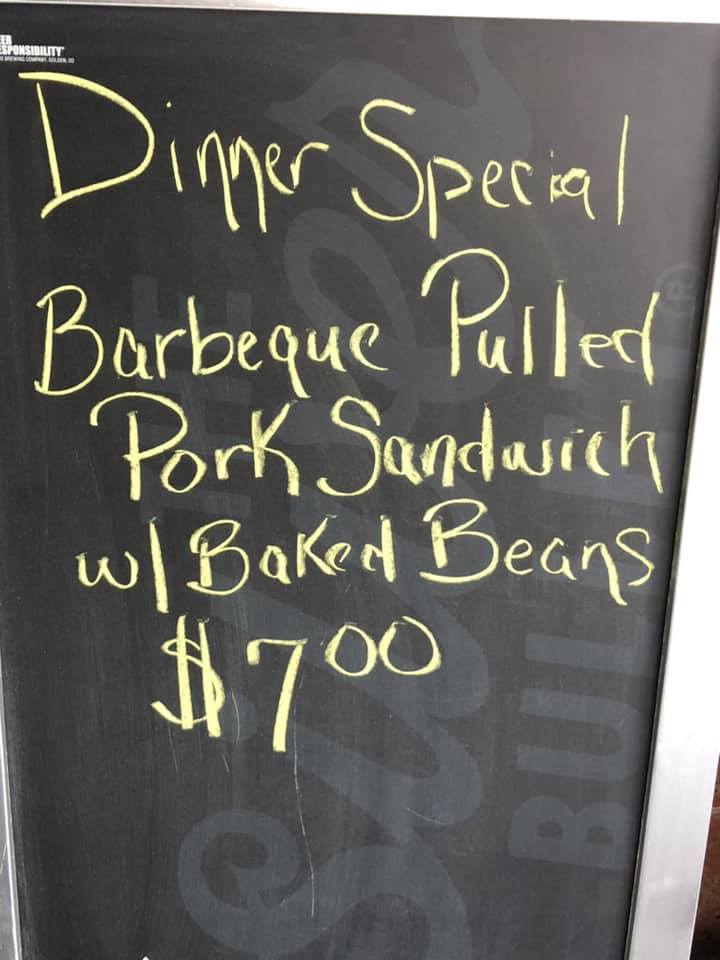 ER
ESPONSIBILITY
BREWING COMPANY, GOLDEN, CO
Dinner Special
Barbeque Pulled
Pork Sandwich
w/ Baked Beans
$7 00
THE
Silver
BULLET®